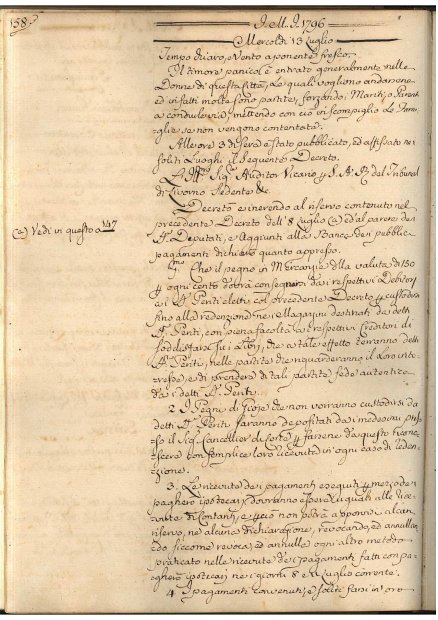 158.
I. M. I. 1796
Mercoldì 13 Luglio
Tempo chiaro, e Vento a ponente fresco.
Il timore panico è entrato generalmente nelle
Donne di questa Città, le quali vogliono andarsene
ed in fatti molte sono partite, forzando i Mariti, o Parenti
a condurle via, mettendo con ciò in scompiglio le Fami-
glie se non vengono contentate.
Alle ore 3 di sera è stato pubblicato, ed affissato nei
soliti Luoghi il seguente Decreto.
L' Ill.mo Sig.r Auditor Vicario p S. A. R. del Tribunal
di Livorno sedente &c.
Decretò e inerendo al riservo contenuto nel
precedente Decreto dell' 8 Luglio (a) ed al parere dei
(a) Vedi in questo a 147
SS. Deputati, e Aggiunti alla Banca dei pubblici
pagamenti dichiarò quanto appresso.
1.mo Che il pegno in Mercanzie della valuta di 150
p ogni cento dovrà consegnarsi dai respettivi Debitori
ai SS. Periti eletti col precedente Decreto p custodirsi
fino alla redenzione nei Magazini destinati da detti
SS. Periti, con piena facoltà ai respettivi Creditori di
soddisfarsi su i Libri, che a tale effetto terranno detti
SS. Periti, nelle partite che riguarderanno il Loro inte-
resse, e di prendere di tali partite fede autentica
da i detti SS. Periti.
2. I Pegni di Gioje che non vorranno custodirsi da
detti SS. Periti saranno depositati da i medesimi pres-
so il Sig.r Cancellier di Corte p farsene da questo ricono-
scere con semplice loro ricevuta in ogni caso di reden-
zione.
3. Le ricevute dei pagamenti eseguiti p mezzo dei
pagherò ipotecarj, dovranno essere le quali alle Rice-
vute di Contanti, e p ciò non potrà apporvisi alcun
riservo, nè alcuna dichiarazione, revocando, ed annullan-
do siccome revoca, ed annulla ogni altro metodo
praticato nelle ricevute dei pagamenti fatti con pa-
gherò ipotecarj nei giorni 8 e 11 Luglio corrente.
4. I pagamenti convenuti, e soliti farsi in oro